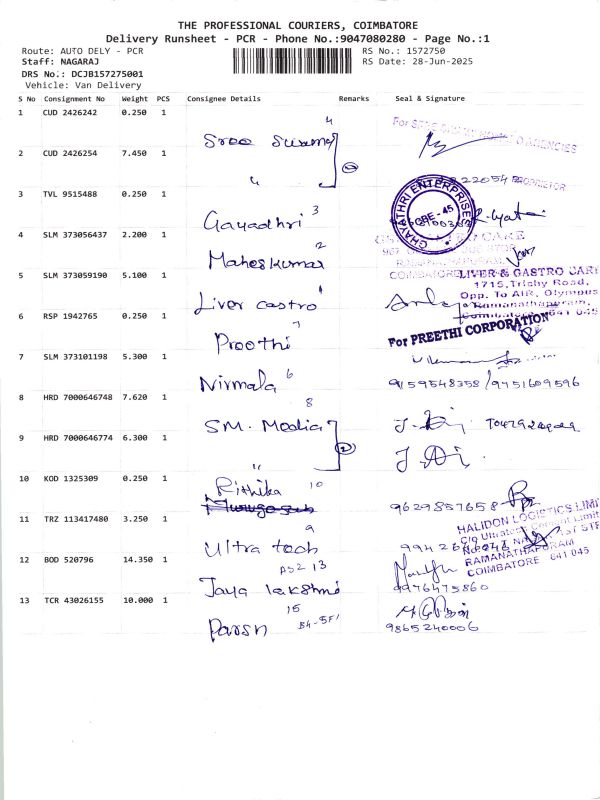 THE PROFESSIONAL COURIERS, COIMBATORE
Delivery Runsheet - PCR - Phone No.:9047080280 - Page No.:1
Route: AUTO DELY - PCR
RS No.: 1572750
Staff: NAGARAJ
RS Date: 28-Jun-2025
DRS No.: DCJB157275001
Vehicle: Van Delivery
S No Consignment No Weight PCS Consignee Details Remarks Seal & Signature
1 CUD 2426242 0.250 1 Sree 4
2 CUD 2426254 7.450 1 " 2
3 TVL 9515488 0.250 1 Gayadhri 3
GAYATHRI ENTERPRISES
CBE - 45
4 SLM 373056437 2.200 1 Maheskumar 2
5 SLM 373059190 5.100 1 Liver castro 1
LIVER & GASTRO CARE
1715, Trichy Road,
Opp. To AIR, Olympus
Ramanathapuram,
Coimbatore - 641 045
6 RSP 1942765 0.250 1 Proothi 7
For PREETHI CORPORATION
7 SLM 373101198 5.300 1 Nirmala 6
9159548358 / 9751609596
8 HRD 7000646748 7.620 1 SM. Modia 8
9 HRD 7000646774 6.300 1 " 2
10 KOD 1325309 0.250 1 Rithika 10
9629857658
11 TRZ 113417480 3.250 1 Ultra tech 9
HALIDON LOGISTICS LIMI
RAMANATHAPURAM
COIMBATORE 641 045
12 BOD 520796 14.350 1 Jaya lakshmi 13
9976475860
13 TCR 43026155 10.000 1 Parsn 15
9865240006